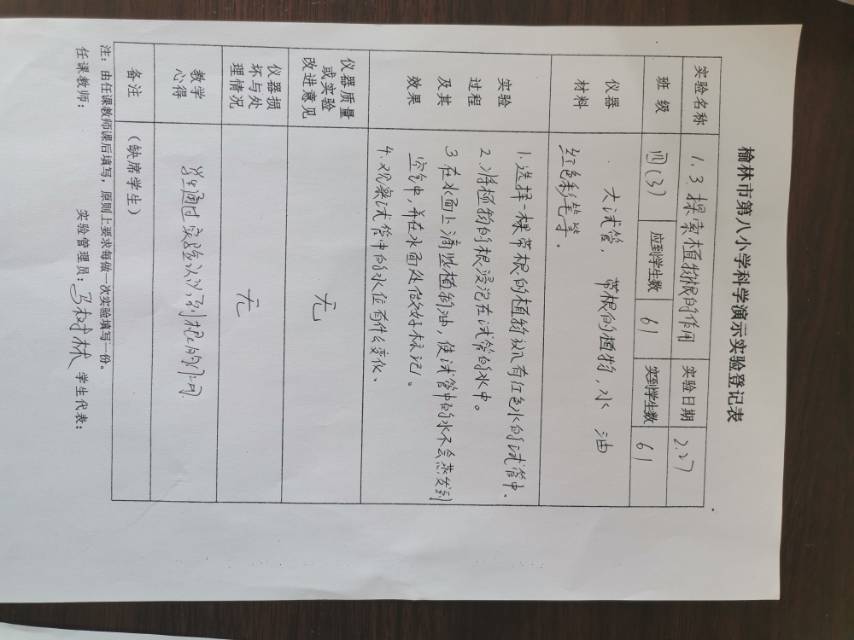 榆林市第八小学科学演示实验登记表
实验名称 1.3探索植物根的作用 实验日期 2.27
班级 四(3) 应到学生数 61 实到学生数 61
仪器材料 大试管, 带根的植物, 水 油
红色彩笔等.
实验过程及其效果 1.选择一棵带根的植物 有红色水的试管中.
2.将植物的根浸泡在试管的水中.
3 在水面上滴些植物油, 使试管中的水不会蒸发到
空气中, 并在水面处做好标记.
4.观察试管中的水位有什么变化.
仪器质量或实验改进意见 无
仪器损坏与处理情况 无
教学心得 学生通过实验认识到根的作用
备注 (缺席学生)
注: 由任课教师课后填写, 原则上要求每做一次实验填写一份。
任课教师: 实验管理员: 马树林 学生代表: